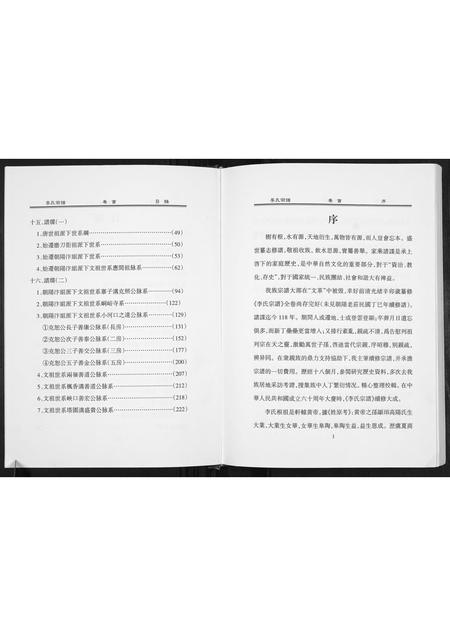 李氏宗譜 卷首 目錄
十五、譜牒(一)
1.唐世祖派下世系綱 (49)
2.始遷磨刀街祖派下世系 (50)
3.始遷朝陽汴祖派下世系 (53)
4.始遷朝陽汴祖派下文祖世系應閏祖脉系 (62)
十六、譜牒(二)
1.朝陽汴祖派下文祖世系寨子溝克熙公脉系 (94)
2.朝陽汴祖派下文祖世系峒峪寺系 (122)
3.朝陽汴祖派下文祖世系小河口之遠公脉系 (129)
①克恕公長子善廉公脉系(長房) (131)
②克恕公次子善泰公脉系(二房) (152)
③克恕公三子善交公脉系(三房) (177)
④克恕公五子善金公脉系(五房) (200)
4.文祖世系兩椏善道公脉系 (207)
5.文祖世系楓香溝善道公脉系 (212)
6.文祖世系峽口善宏公脉系 (218)
7.文祖世系塔園溝盛貴公脉系 (222)
李氏宗譜 卷首 序
序
樹有根,水有源,天地衍生,萬物皆有源,而人豈會忘本。盛
世纂志修譜,敬祖收族。飲水思源,實屬善舉。家乘譜諜是承上
啓下的家庭歷史,是中華自然文化的重要部分,對于“資治、教
化、存史”,對于國家統一、民族團結、社會和諧大有裨益。
我族宗譜大部在“文革”中被毀,幸好前清光緒辛卯歲纂修
《李氏宗譜》全卷尚存完好(未見朝陽老莊民國丁巳年續修譜)。
譜諜迄今118年。期間人或遷地、土或登雲發跡;年齡月日遺忘
俱多,而新丁纍纍更當增入;又排行紊亂,親疏不清,爲告慰列祖
列宗在天之靈,激勵萬世子孫,啓迪當代宗親,序昭穆,别親疏,
辨异同。在衆親族的鼎力支持協助下,我主筆續修宗譜,并承擔
宗譜的一切費用。歷經十八個月,參閱研究歷史資料,多次去我
族居地采訪考證,搜集族中人丁繁衍情况,精心整理校輯,在中
華人民共和國成立六十周年大慶時,《李氏宗譜》續修大成。
李氏根祖是軒轅黄帝,據《姓原考》:黄帝之孫顓頊高陽氏生
大業,大業生女華,女華生臯陶,臯陶生益,益生恩成。歷虞夏商
1